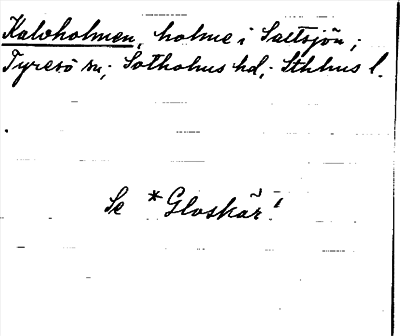 Kalvholmen, holme i Saltsjön,
Tyresö sn, Sotholms hd, Sthlms l.
Se *Gloskär!